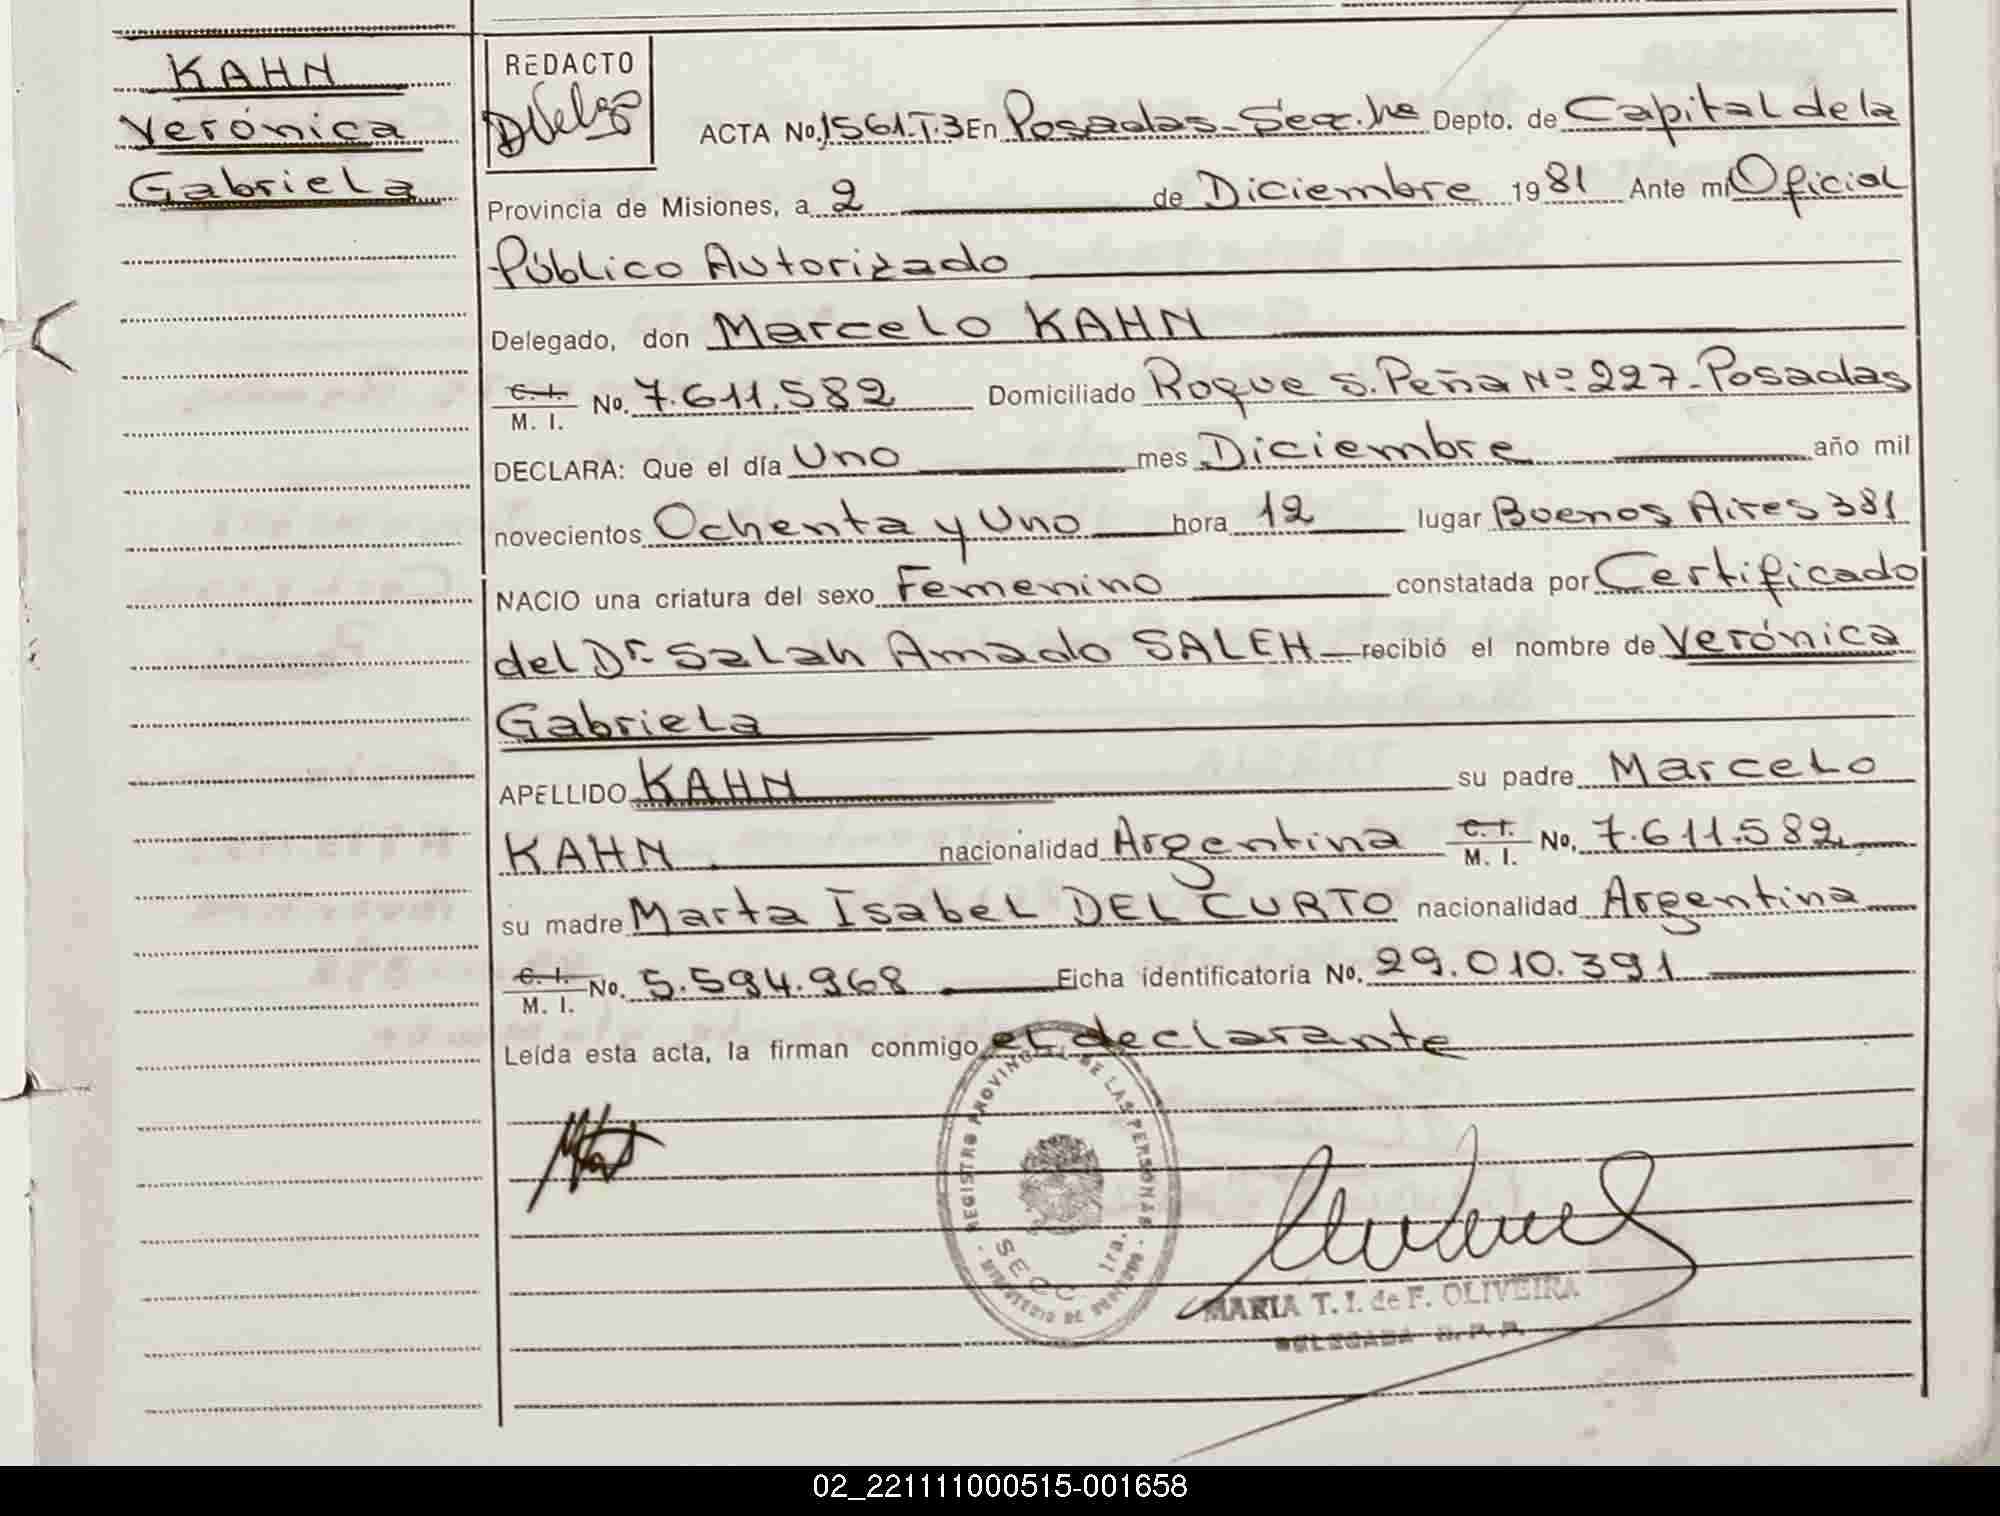 KAHN
Verónica
Gabriela
REDACTO
ACTA No. 1561.T.3 En Posadas-Sec. 1ra Depto. de Capital de la
Provincia de Misiones, a 2 de Diciembre 1981 Ante mí Oficial
Público Autorizado
Delegado, don Marcelo KAHN
C. I.
M. I. No. 7.611.582 Domiciliado Roque S. Peña Nº 227-Posadas
DECLARA: Que el día Uno mes Diciembre año mil
novecientos Ochenta y Uno hora 12 lugar Buenos Aires 381
NACIO una criatura del sexo Femenino constatada por Certificado
del Dr. Salah Amado SALEH recibió el nombre de Verónica
Gabriela
APELLIDO KAHN su padre Marcelo
KAHN nacionalidad Argentina C. I. M. I. No. 7.611.582
su madre Marta Isabel DEL CURTO nacionalidad Argentina
C. I.
M. I. No. 5.594.968 Ficha identificatoria No. 29.010.391
Leída esta acta, la firman conmigo el declarante
REGISTRO PROVINCIAL DE LAS PERSONAS
SECC 1ra.
MARIA T. I. de F. OLIVEIRA
DELEGADA R. P. P.
02_221111000515-001658